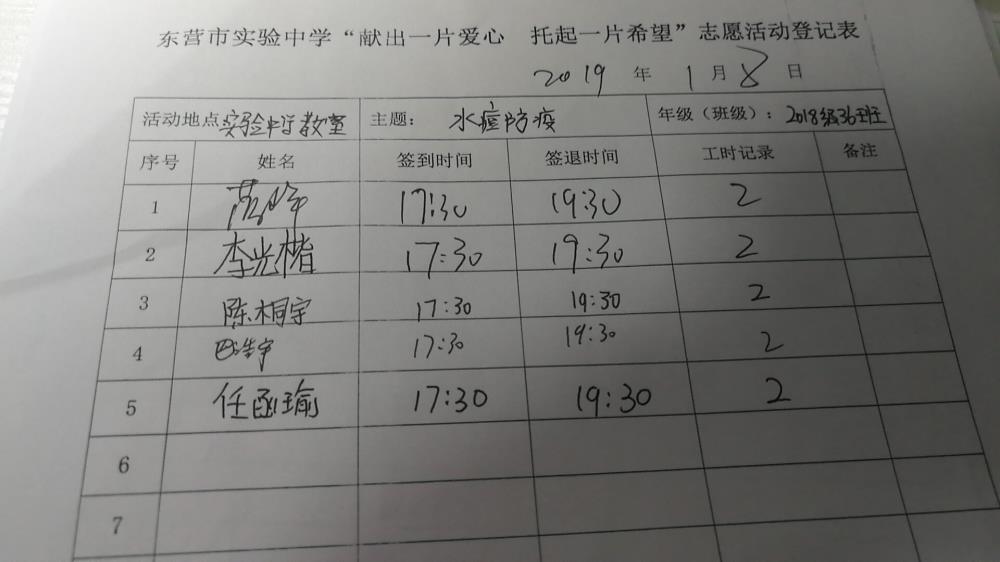 东营市实验中学“献出一片爱心 托起一片希望”志愿活动登记表
2019 年 1 月 8 日
活动地点 实验中学教室 主题: 水痘防疫 年级（班级）: 2018级36班
序号 姓名 签到时间 签退时间 工时记录 备注
1 17:30 19:30 2
2 李光楷 17:30 19:30 2
3 陈相宇 17:30 19:30 2
4 17:30 19:30 2
5 任函瑜 17:30 19:30 2
6
7